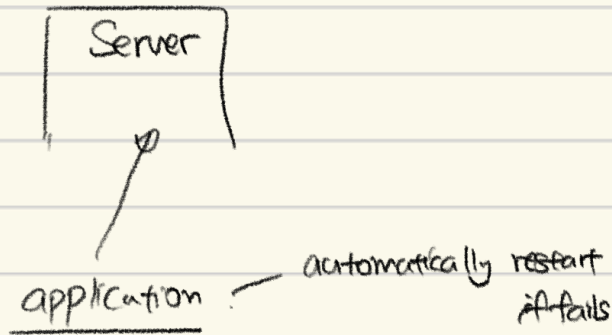 Server
application
automatically restart
if fails